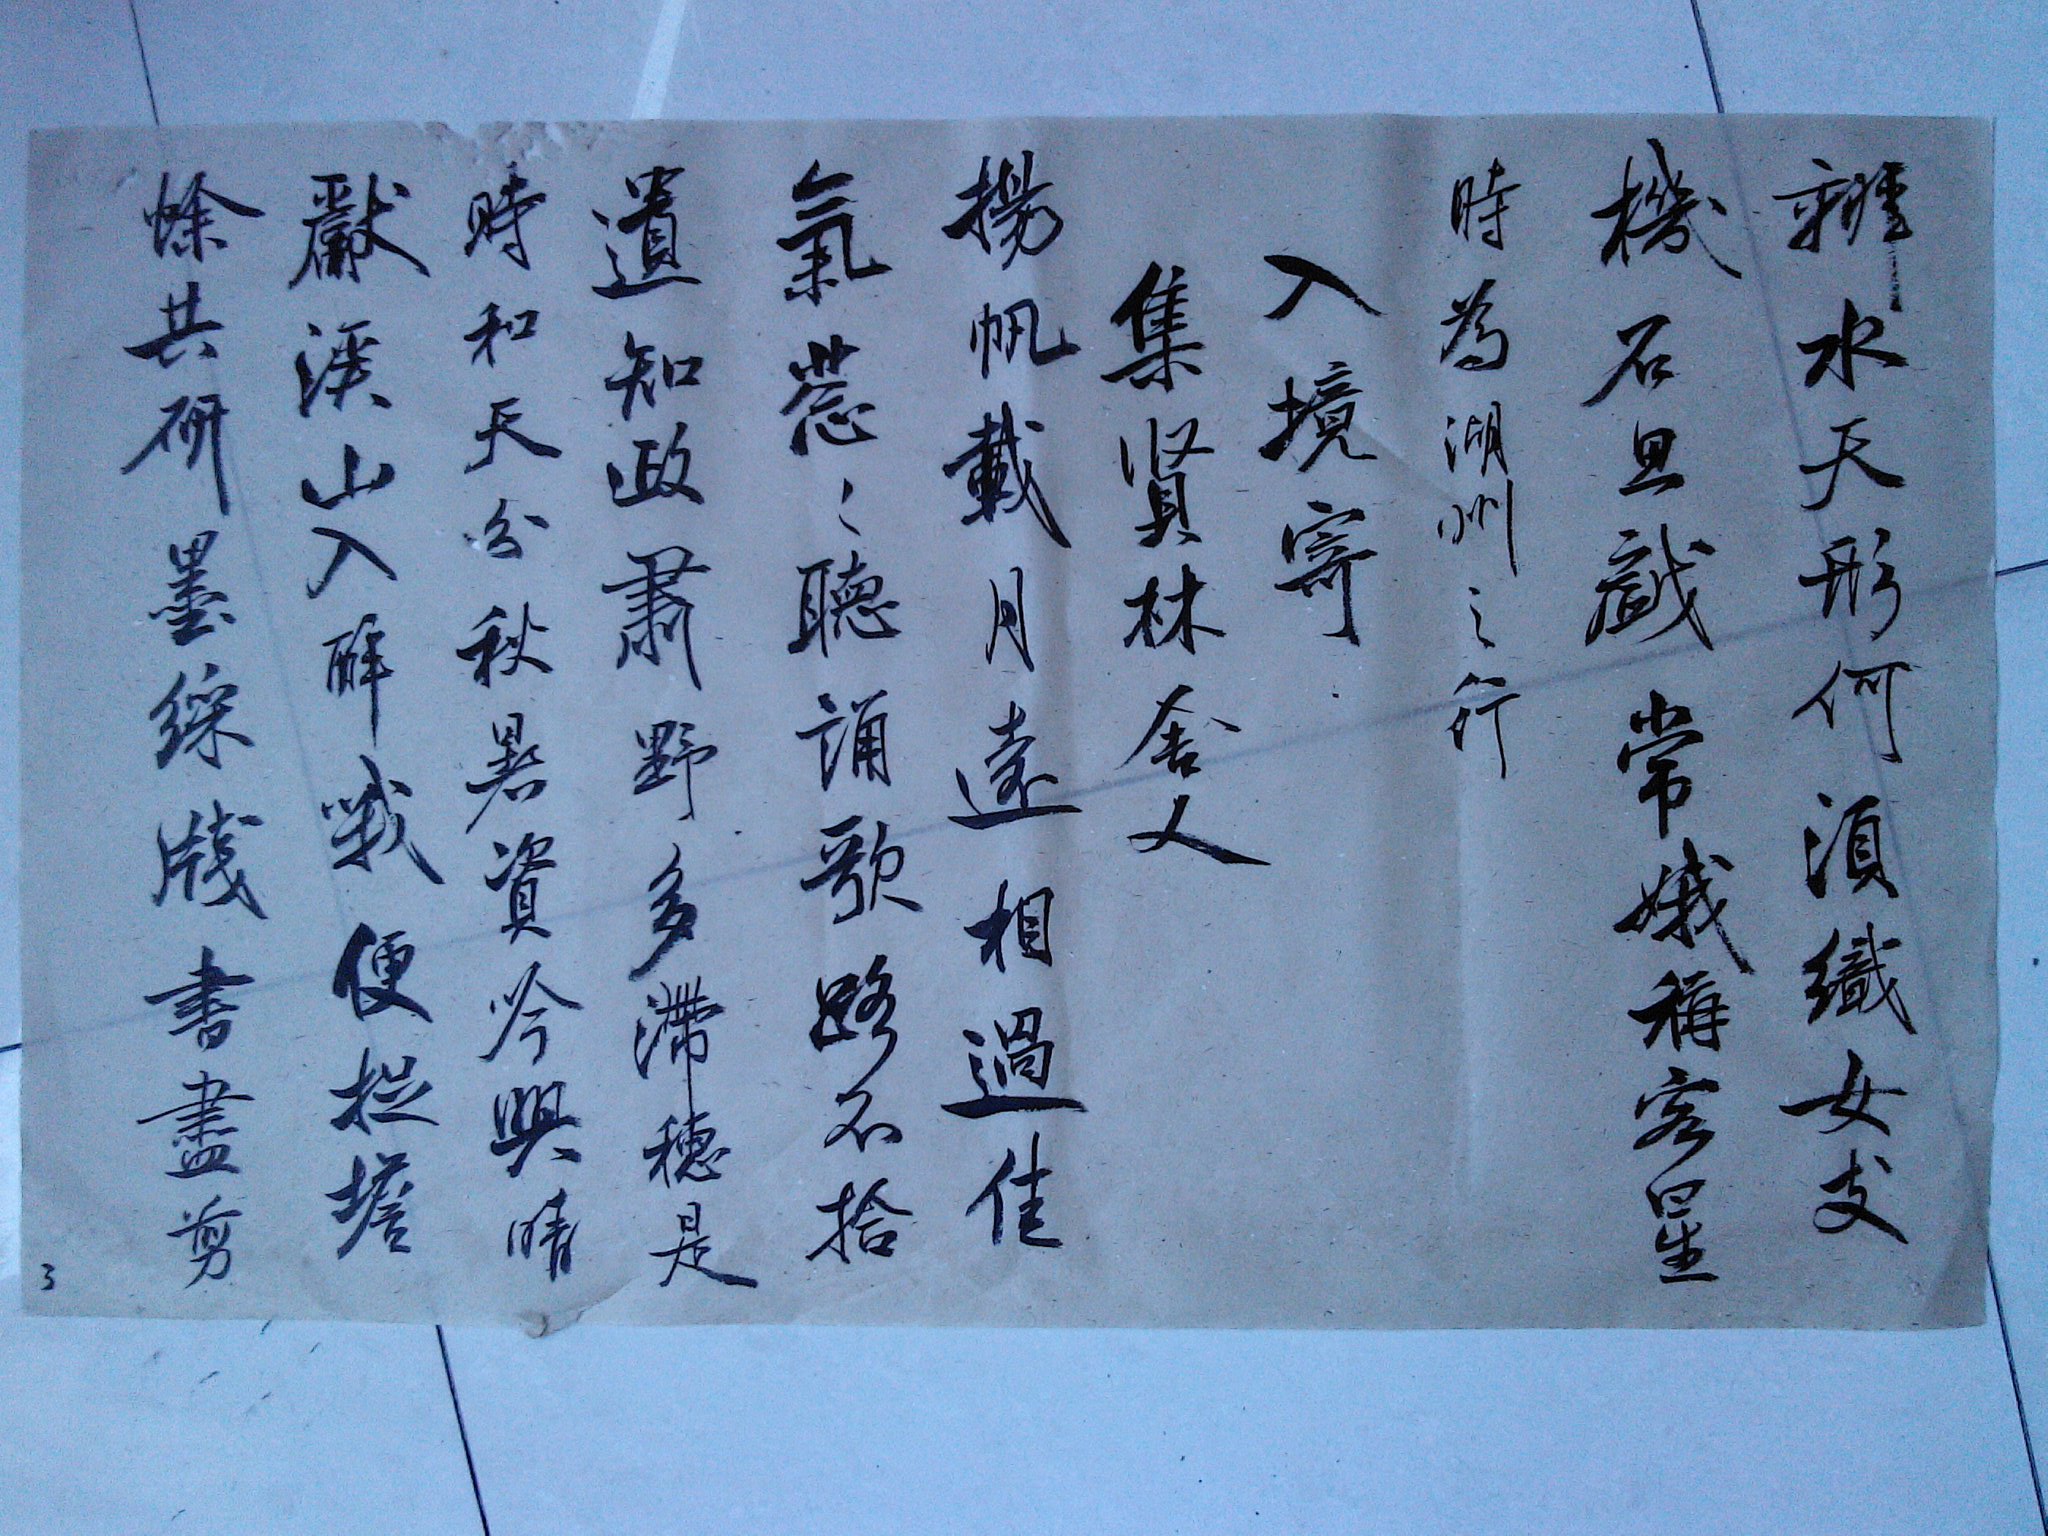 辨水天形何須織女支
機石且戲常娥稱客星
時為湖州之行
入境寄
集賢林舍人
揚帆載月遠相過佳
氣蔥〻聽誦歌路不拾
遺知政肅野多滯穗是
時和天分秋暑資吟興晴
獻溪山入醉哦便捉蟾
蜍共研墨綵牋書盡剪
3